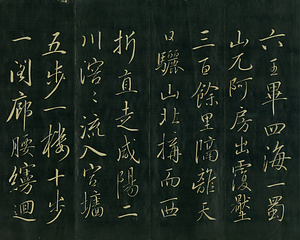 六王畢四海一蜀
山兀阿房出覆壓
三百餘里隔離天
日驪山北構而西
折直走咸陽二
川溶〻流入宮墻
五步一樓十步
一閣廊腰縵迴